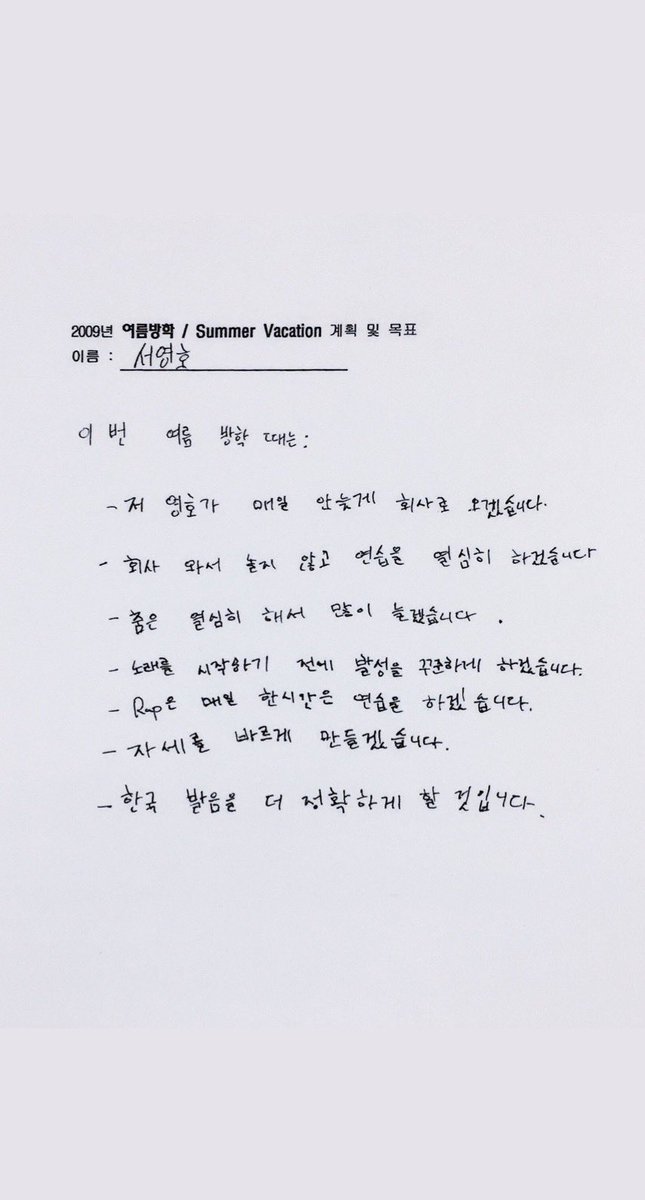 2009년 여름방학 / Summer Vacation 계획 및 목표
이름 : 서영호
이번 여름 방학 때는:
- 저 영호가 매일 안늦게 회사로 오겠습니다.
- 회사 와서 놀지 않고 연습을 열심히 하겠습니다
- 춤은 열심히 해서 많이 늘겠습니다.
- 노래를 시작하기 전에 발성을 꾸준하게 하겠습니다.
- Rap은 매일 한시간은 연습을 하겠습니다.
- 자세를 바르게 만들겠습니다.
- 한국 발음을 더 정확하게 할 것입니다.